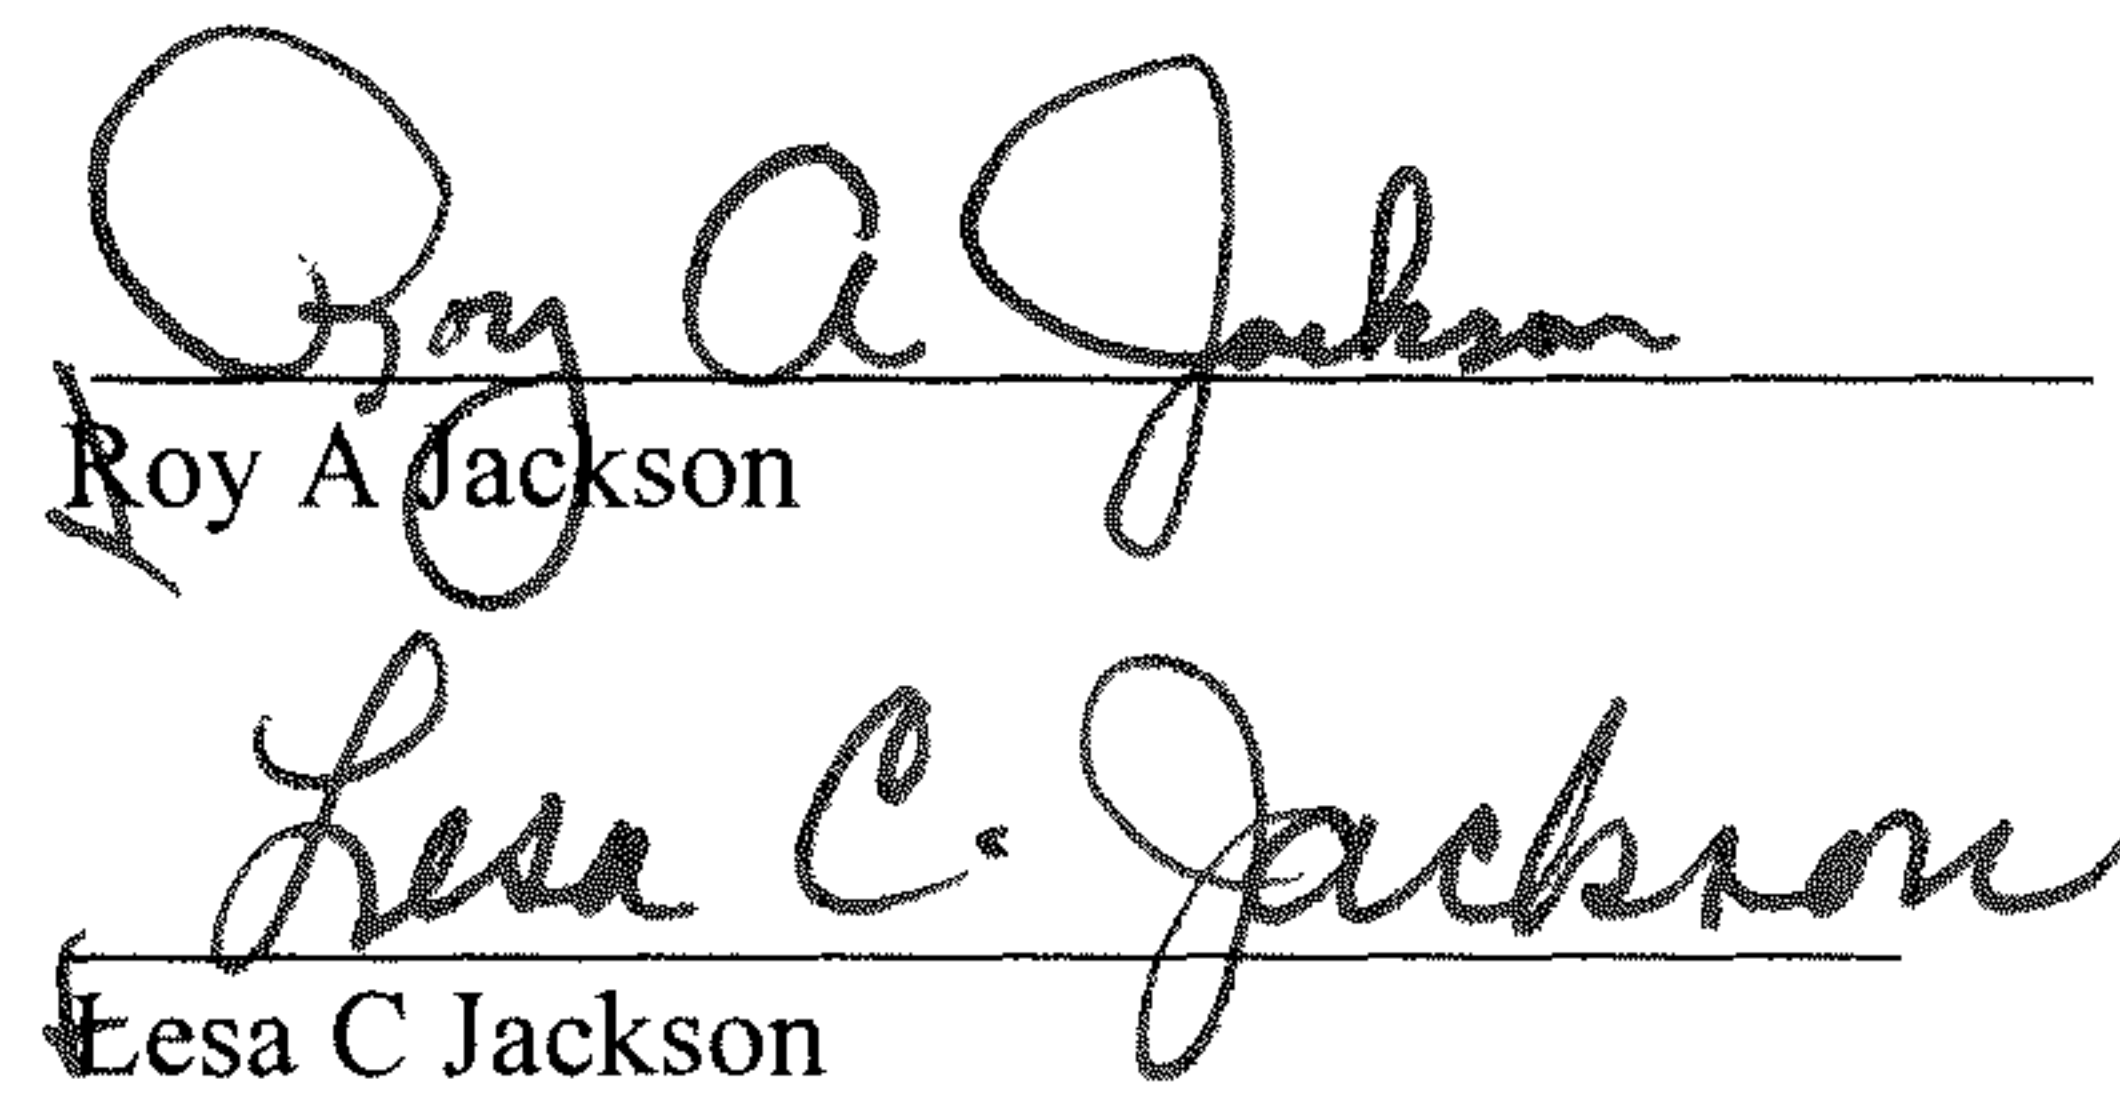 Roy A Jackson
Roy A Jackson
Lesa C. Jackson
Lesa C Jackson